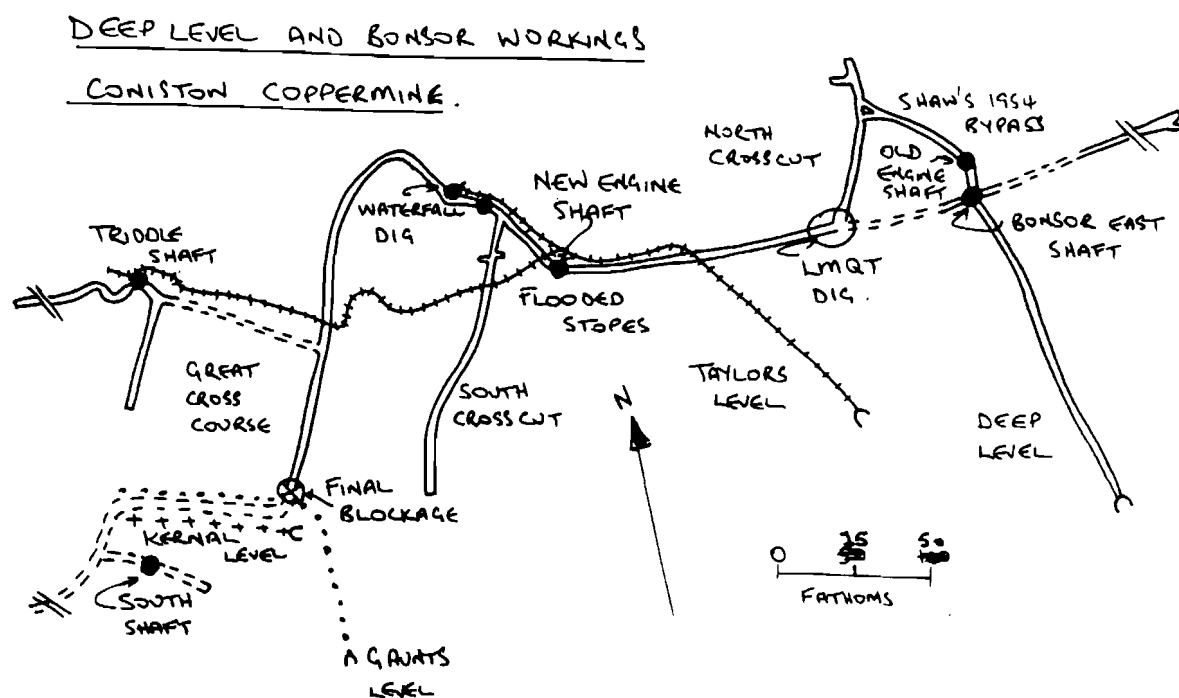 DEEP LEVEL AND BONSOR WORKINGS
CONISTON COPPERMINE.
SHAW'S 1954
BYPASS
NORTH
CROSSCUT
OLD
ENGINE
SHAFT
NEW ENGINE
SHAFT
WATERFALL
DIG
BONSOR EAST
SHAFT
TRIDDLE
SHAFT
LMQT
DIG.
FLOODED
STOPES
GREAT
CROSS
COURSE
SOUTH
CROSSCUT
TAYLORS
LEVEL
N
DEEP
LEVEL
FINAL
BLOCKAGE
KERNAL
LEVEL
SOUTH
SHAFT
0 25 50
FATHOMS
GAUNTS
LEVEL